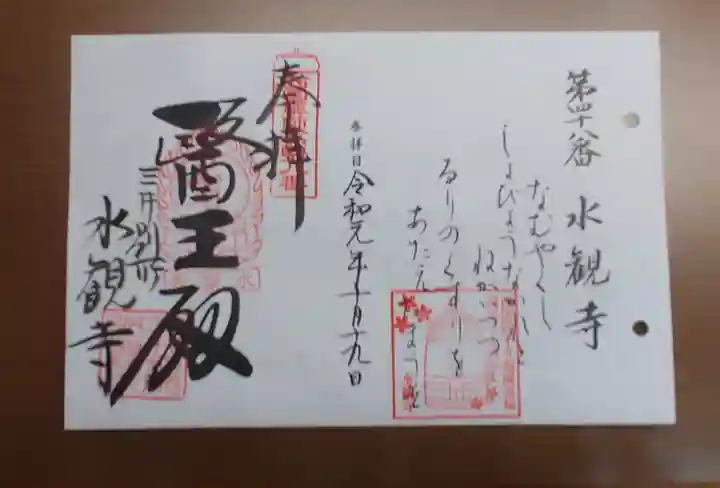 第四十八番 水観寺
なむやくし
しよびようなかれと
ねがいつつ
るりのくすりを
あたえたまうぞ
参拝日 令和元年十月十九日
奉拝
醫王殿
三井別所
水観寺